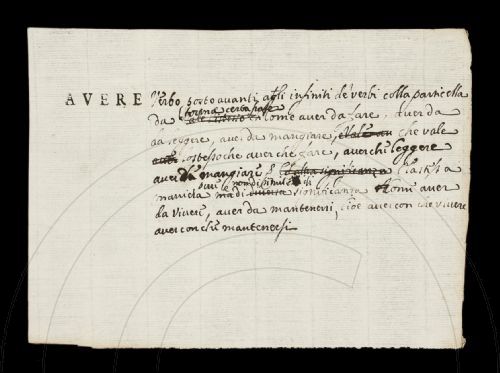 AVERE Verbo posto avanti agli infiniti de verbi colla particella
da forma certa frase come aver da fare, aver da
da leggere, aver da mangiare, che vale
lo stesso che aver che fare, aver che leggere
aver da mangiare
maniera ma di significanza come aver
da vivere, aver da mantenersi, cioè aver con che vivere
aver con che mantenersi.